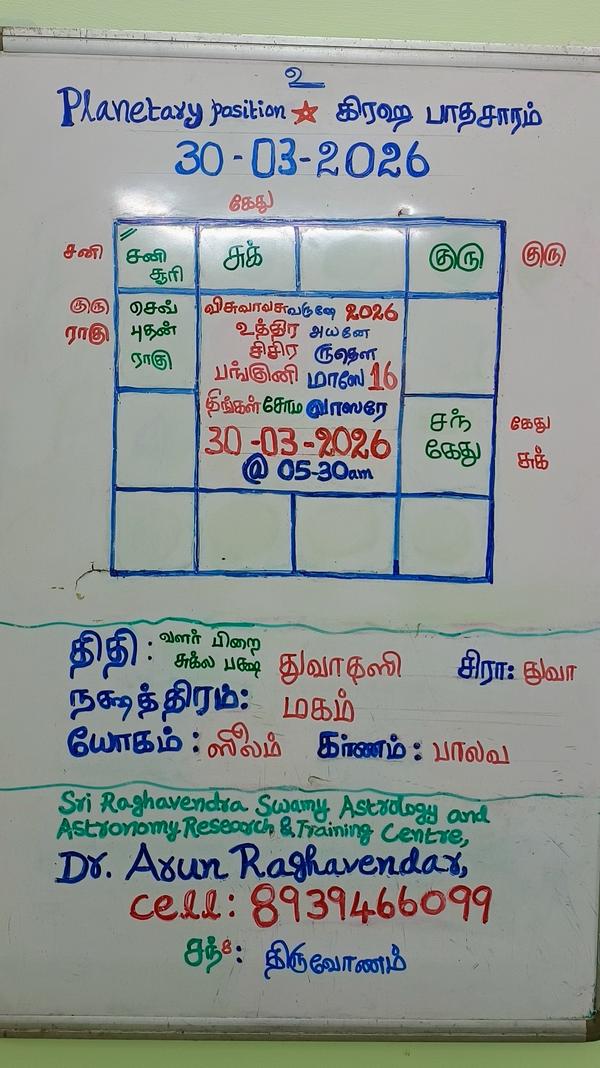 உ
Planetary position ☆ கிரஹ பாதசாரம்
30-03-2026
கேது
சனி
சனி சூரி
சுக்
குரு
குரு
குரு
ராகு
செவ்
புதன்
ராகு
விசுவாவசுவருஷே 2026
உத்திர அயனே
சிசிர ருதௌ
பங்குனி மாஸே 16
திங்கள் சோம வாஸரே
30-03-2026
@ 05-30am
சந்
கேது
கேது
சுக்
திதி : வளர் பிறை சுக்ல பக்ஷ துவாதஸி சிரா: துவா
நக்ஷத்திரம்: மகம்
யோகம் : ஸூலம் கரணம் : பாலவ
Sri Raghavendra Swamy Astrology and
Astronomy Research & Training Centre,
Dr. Arun Raghavendar,
cell: 8939466099
சந்8: திருவோணம்